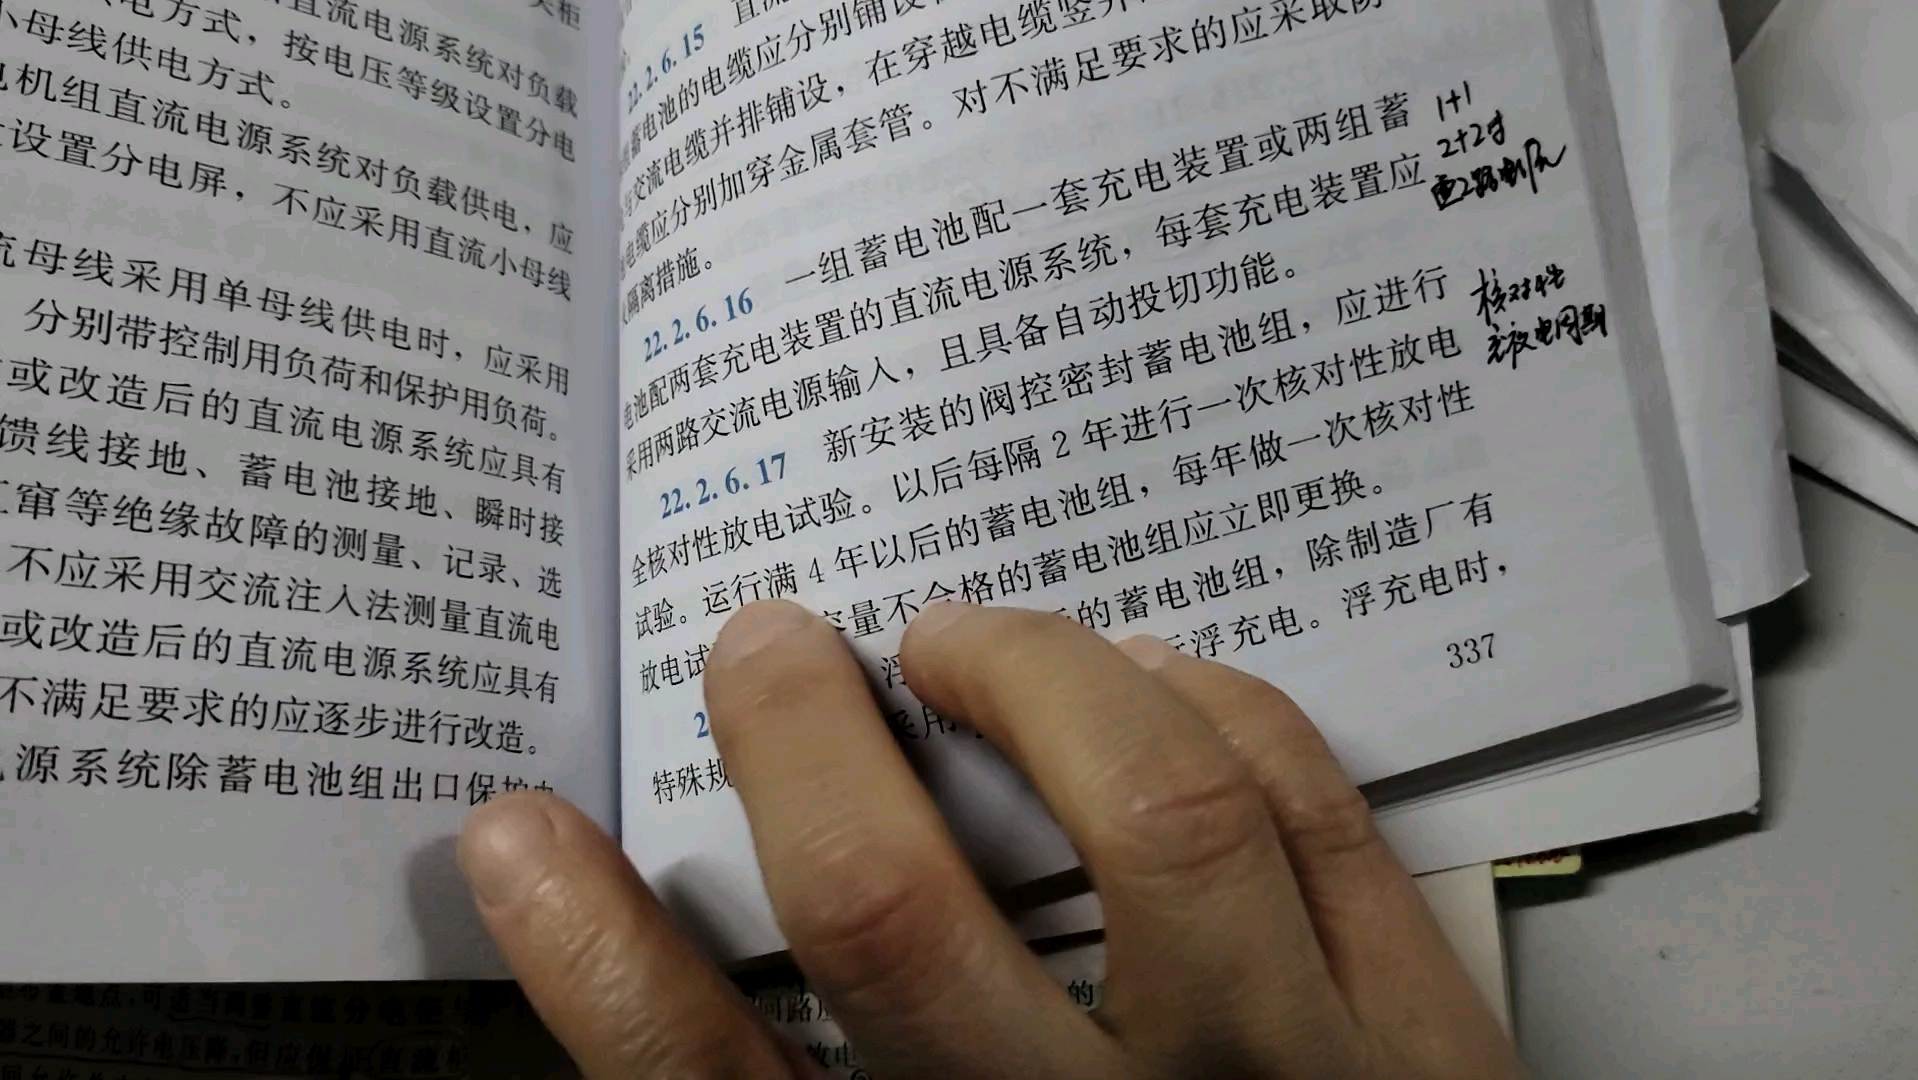 关柜
直流电源系统对负载
电方式，按电压等级设置分电
小母线供电方式。
电机组直流电源系统对负载供电，应
设置分电屏，不应采用直流小母线
流母线采用单母线供电时，应采用
分别带控制用负荷和保护用负荷。
或改造后的直流电源系统应具有
馈线接地、蓄电池接地、瞬时接
互窜等绝缘故障的测量、记录、选
不应采用交流注入法测量直流电
或改造后的直流电源系统应具有
不满足要求的应逐步进行改造。
源系统除蓄电池组出口保护电
22.2.6.15 直流
蓄电池的电缆应分别铺设
与交流电缆并排铺设，在穿越电缆竖井
电缆应分别加穿金属套管。对不满足要求的应采取防
隔离措施。
22.2.6.16 一组蓄电池配一套充电装置或两组蓄
电池配两套充电装置的直流电源系统，每套充电装置应
采用两路交流电源输入，且具备自动投切功能。
22.2.6.17 新安装的阀控密封蓄电池组，应进行
全核对性放电试验。以后每隔 2 年进行一次核对性放电
试验。运行满 4 年以后的蓄电池组，每年做一次核对性
放电试 容量不合格的蓄电池组应立即更换。
2 浮 的蓄电池组，除制造厂有
特殊规 采用 浮充电。浮充电时，
337
1+1
2+2时
核对性
充放电周期
可适当调整直流分电柜
器之间的允许电压降，但应保证直流
回路
的
放电